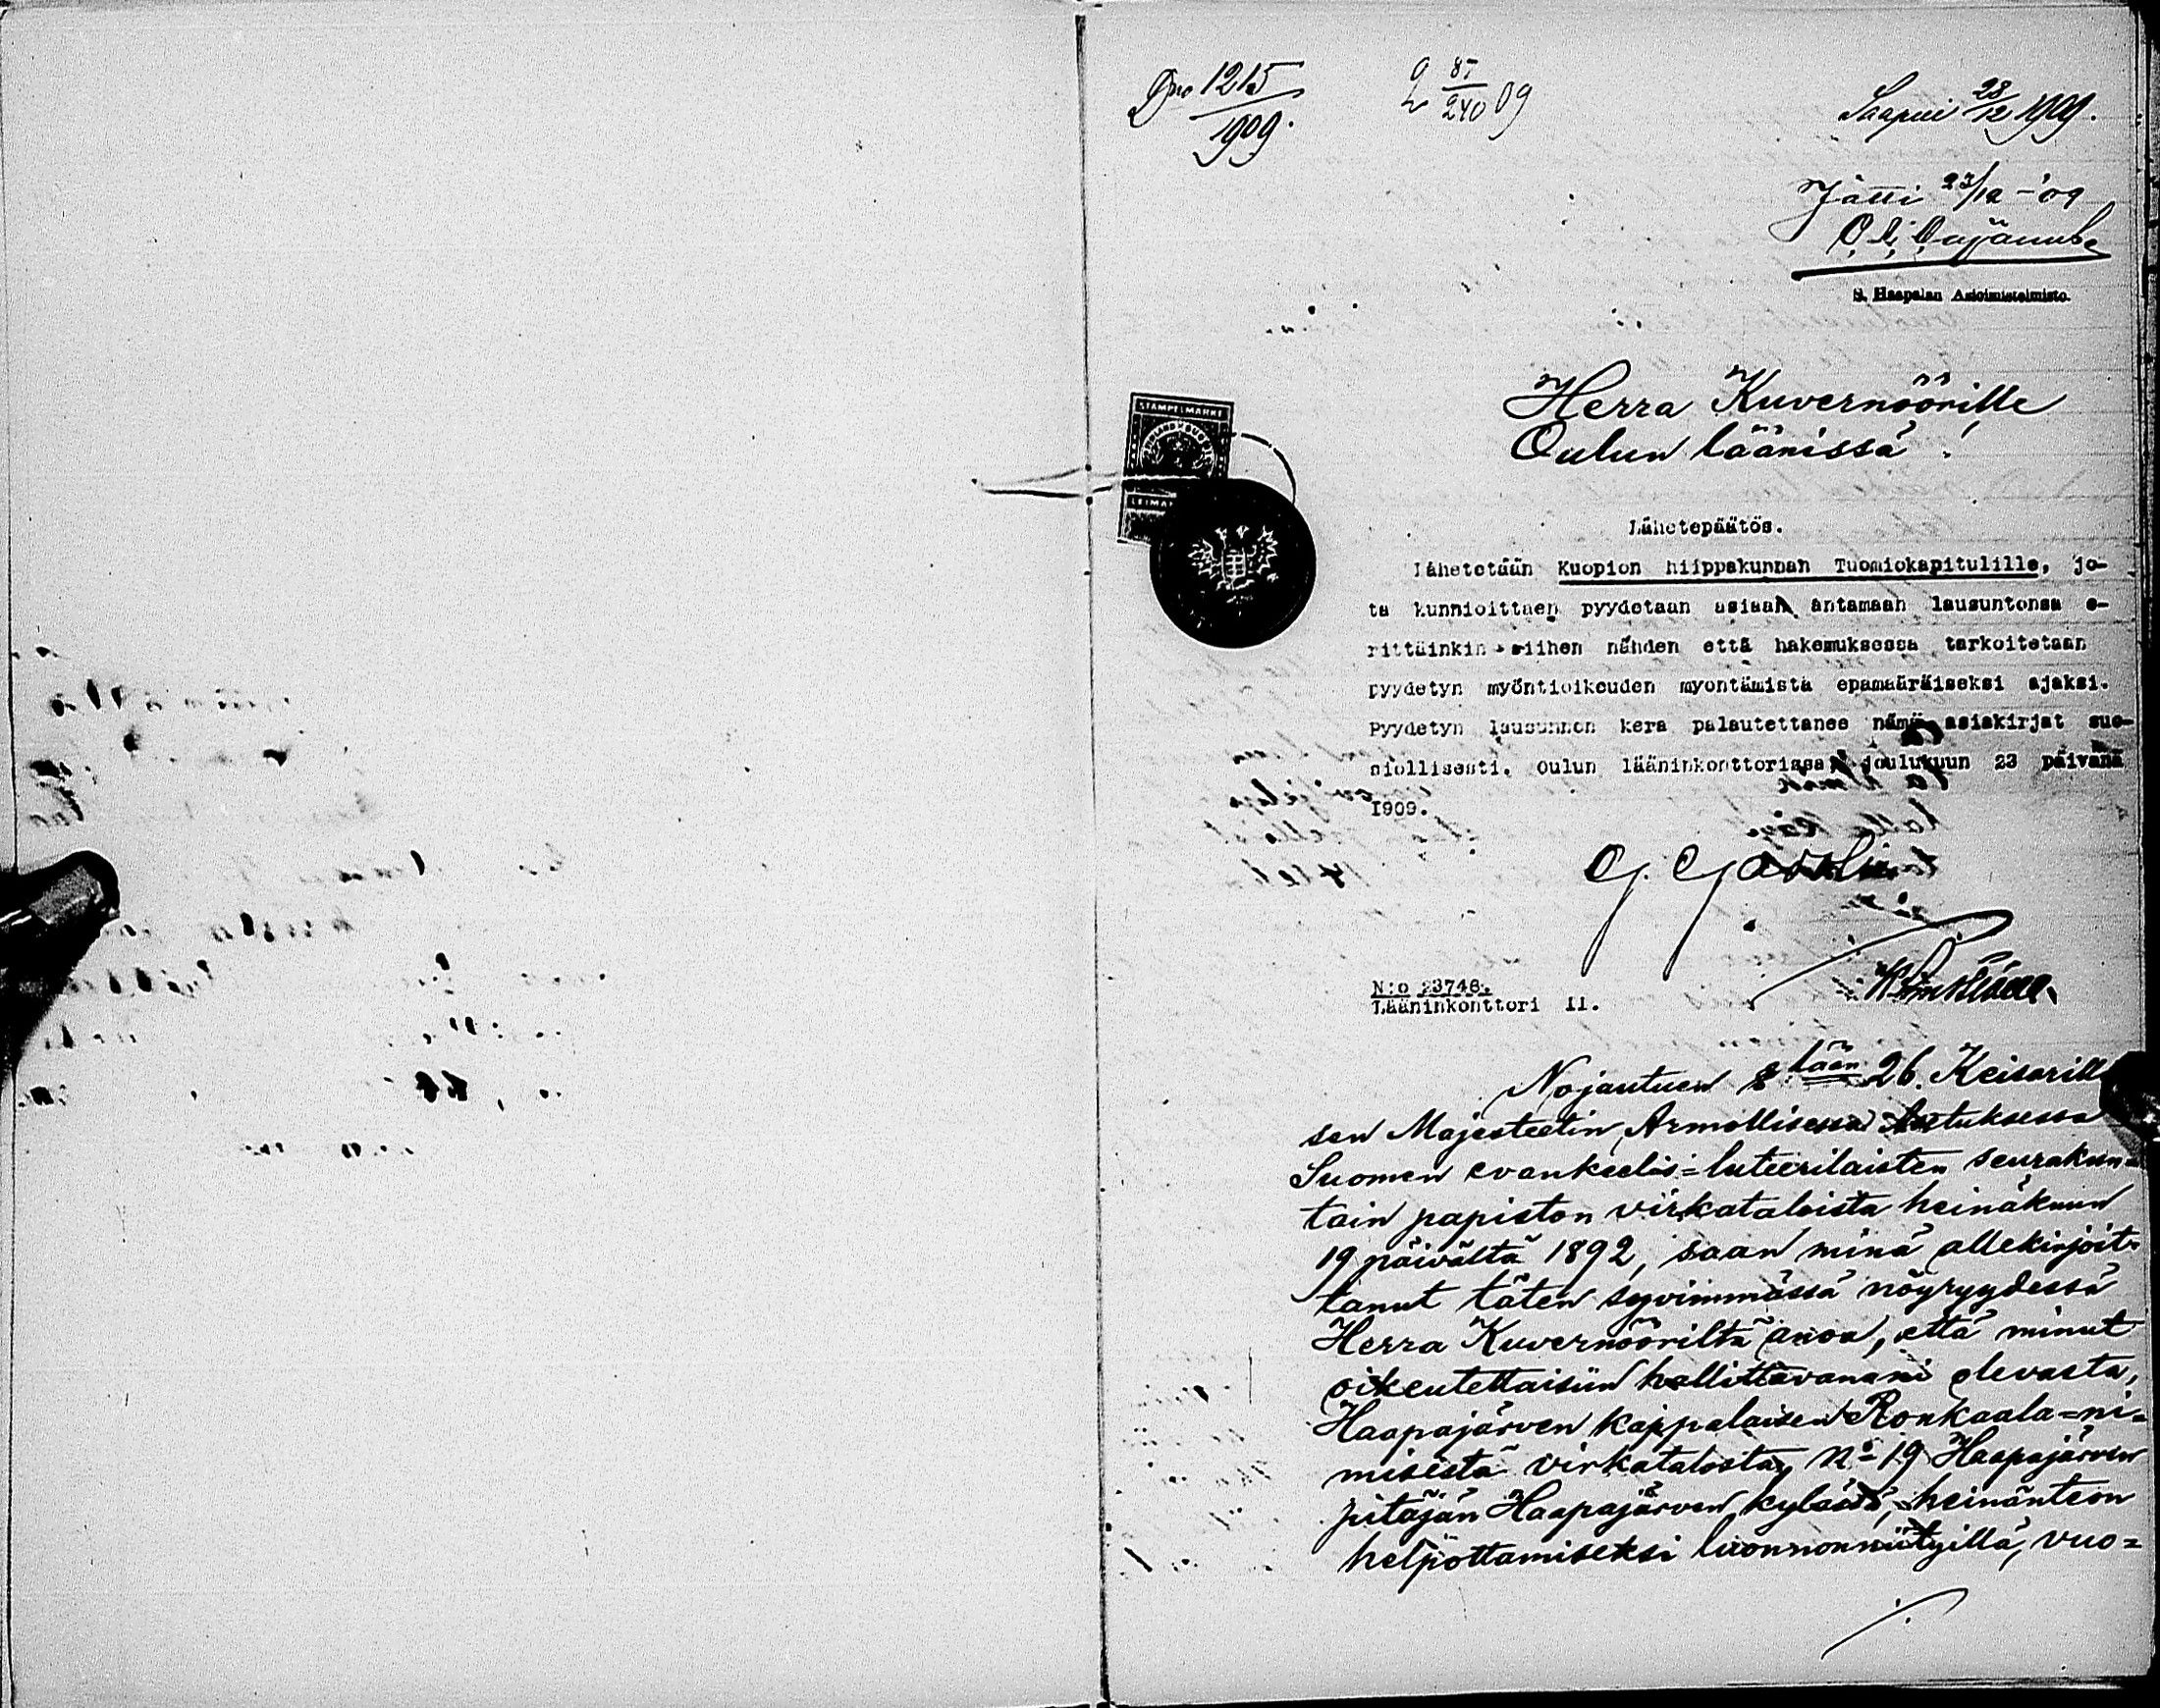 Dno 1215
1909.
87
240 09
Saapui 28/12 1909.
Jätti 23/12 -'09
S. Haapalan Asioimistoimisto.
Herra Kuvernöörille
Oulun läänissä!
STAMPELMARKE
Lähetepäätös.
Lähetetään Kuopion hiippakunnan Tuomiokapitulille, jo-
ta kunnioittaen pyydetaan asiaan antamaan lausuntonsa e-
rittäinkin siihen nähden että hakemuksessa tarkoitetaan
pyydetyn myöntioikeuden myontämistä epamaäräiseksi ajaksi.
Pyydetyn lausunnon kera palautettanee nämä asiakirjat suo-
siollisesti. Oulun lääninkonttorissa joulukuun 23 päivänä
1909.
N:o 23748.
Lääninkonttori II.
Nojautuen § lään 26. Keisarilli
sen Majesteetin Armollisessa Asetuksessa
Suomen evankeelis=luteerilaisten seurakun=
tain papiston virkataloista heinäkuun
19 päivältä 1892, saan minä allekirjoit=
tanut täten syvimmässä nöyryydessä
Herra Kuvernööriltä anoa, että minut
oikeutettaisiin hallittavanani olevasta,
Haapajärven kappalaisen Ronkaala=ni=
misestä virkatalosta, No 19 Haapajärven
pitäjän Haapajärven kylässä, heinänteon
helpottamiseksi luonnonniityillä, vuo=
./.